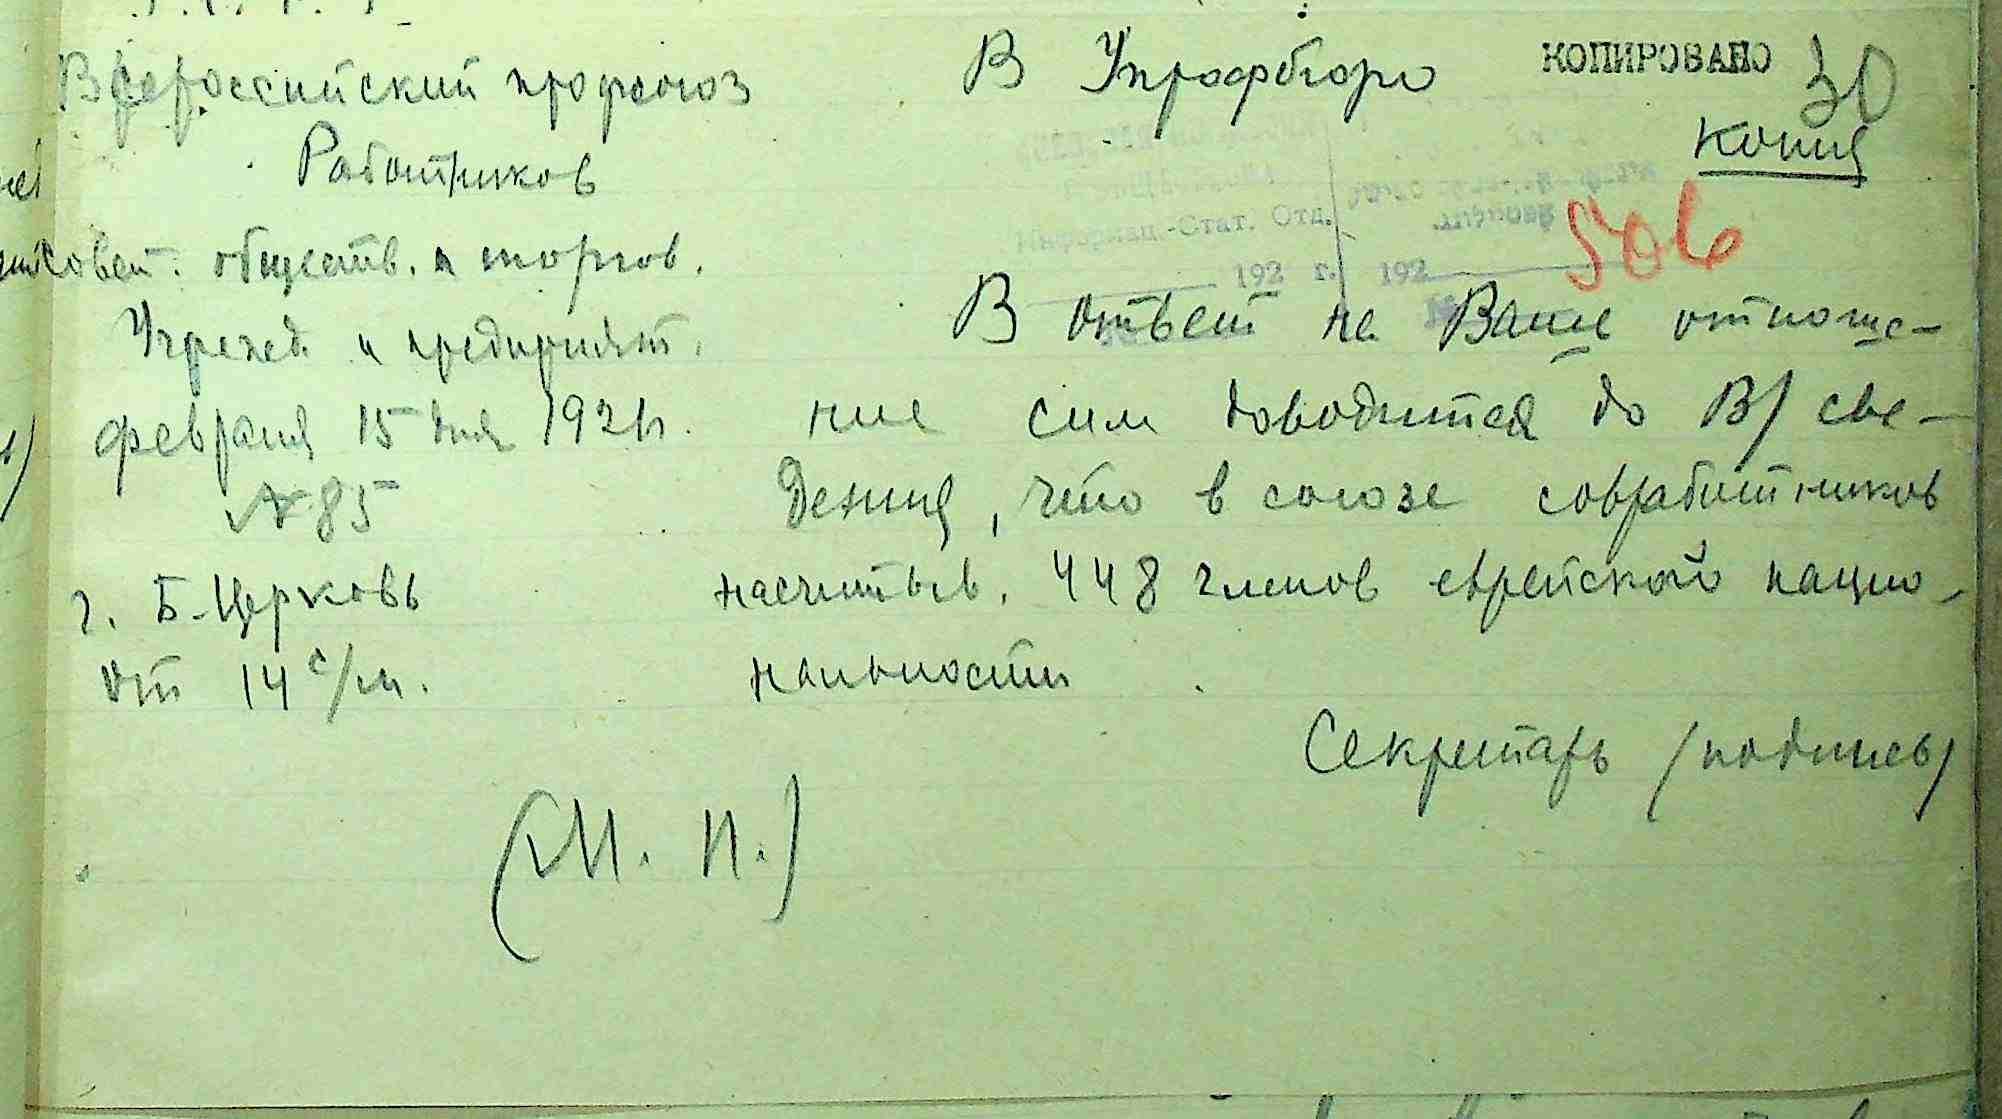 Всероссийский профсоюз
Работников
Совет. обществ. и торгов.
Учрежд. и предприят.
февраля 15 дня 1921 г.
№ 85
г. Б.-Церковь
от 14 с/м.
(М. П.)
В Упрофбюро
КОПИРОВАНО
30
копия
506
Информац.-Стат. Отд.
192 г. 192
В ответ на Ваше отноше-
ние сим доводится до В/ све-
дения, что в союзе совработников
насчитыв. 448 членов еврейской нацио-
нальности
Секретарь /подпись/